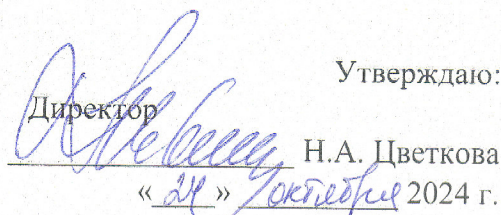 Утверждаю:
Директор
Н.А. Цветкова
«24» октября 2024 г.